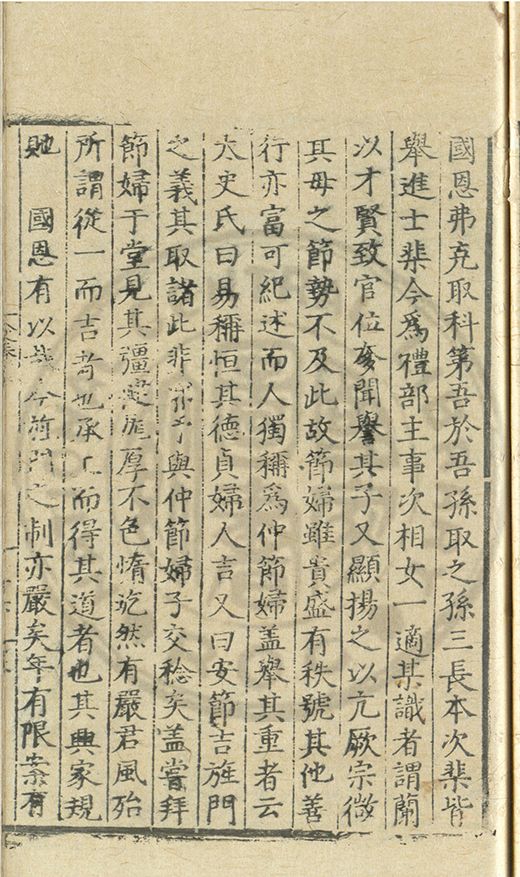 國恩弗克取科第吾於吾孫取之孫三長本次棐皆
舉進士棐今爲禮部主事次相女一適某識者謂蘭
以才賢致官位發聞譽其子又顯揚之以亢厥宗微
其母之節勢不及此故節婦雖貴盛有秩號其他善
行亦富可紀述而人獨稱爲仲節婦盖舉其重者云
太史氏曰易稱恒其德貞婦人吉又曰安節吉旌門
之義其取諸此非邪予與仲節婦子交稔矣盖嘗拜
節婦于堂見其彊厚不色惰訖然有嚴君風殆
所謂從一而吉者也承上而得其道者也其興家規
貤 國恩有以哉今旌門之制亦嚴矣年有限案有